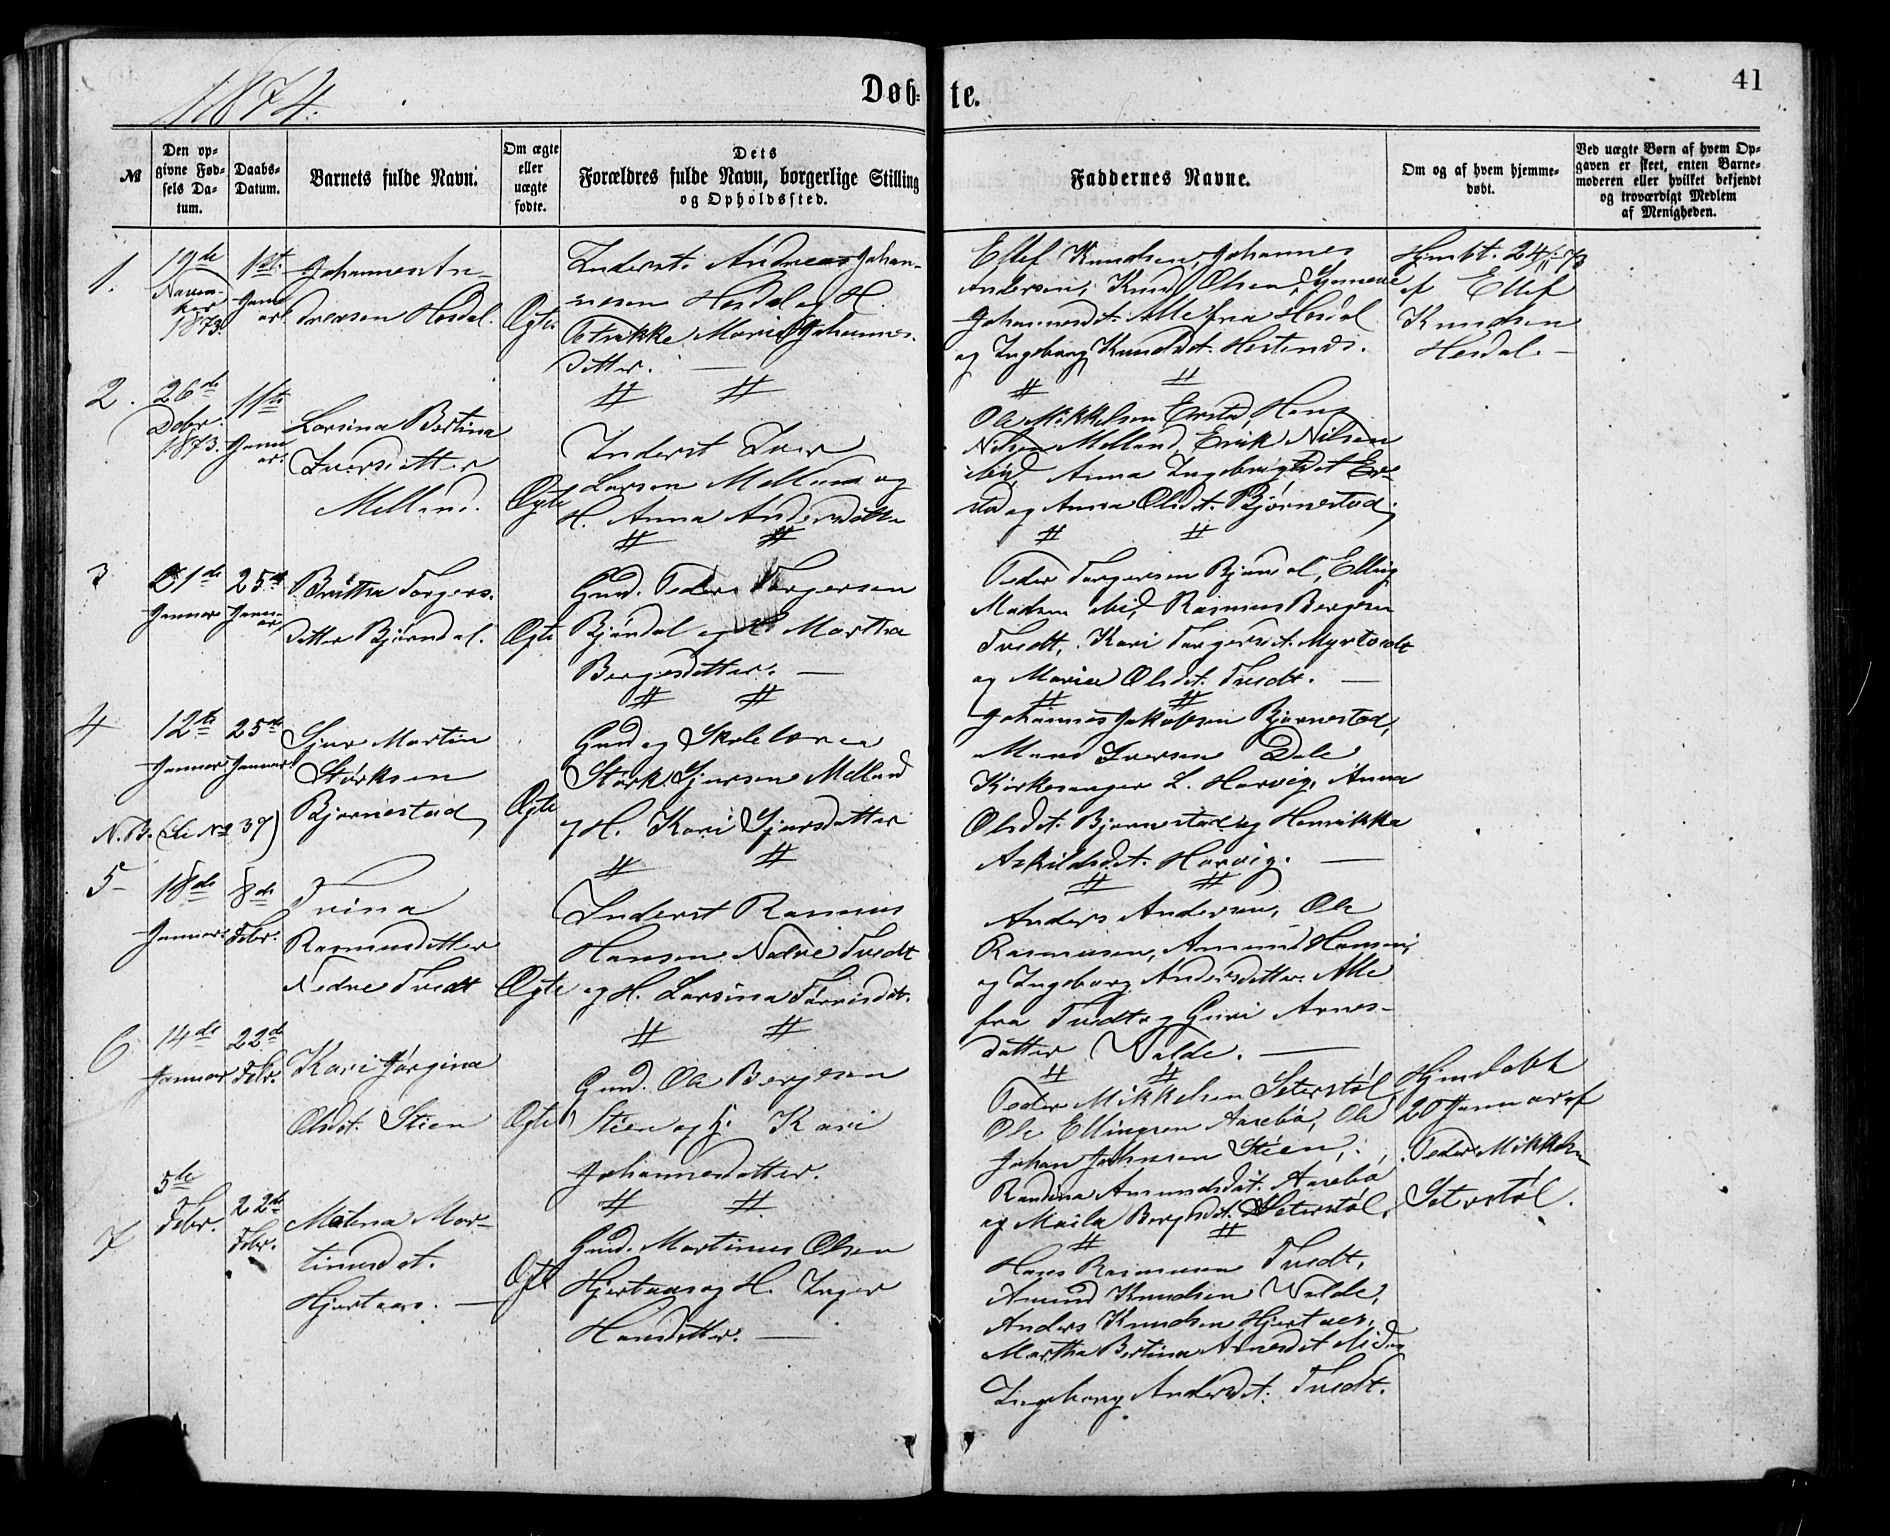 1874.
Døb-
te.
41
№
Den op-
givne Fød-
sels Da-
tum.
Daabs-
Datum.
Barnets fulde Navn.
Om ægte
eller
uægte
fødte.
Dets
Forældres fulde Navn, borgerlige Stilling
og Opholdssted.
Faddernes Navne.
Om og af hvem hjemme-
døbt.
Ved uægte Børn af hvem Op-
gaven er skeet, enten Barne-
moderen eller hvilket bekjendt
og troværdigt Medlem
af Menigheden.
1.
19de
Novem-
ber
1873.
1ste
Janu-
ar
Johannes An-
dreasen Hesdal.
Ægte
Inderst. Andreas Johan-
nesen Hesdal og H.
Marie Johannes-
datter. —
Ellef Knudsen, Johannes
Andersen, Knud Olsen, Synneve
Johannesdt. Alle fra Hesdal
og Ingeborg Knudsdt. Hestenes.
Hjmbt. 24/11 73
af Ellef
Knudsen
Hesdal. —
2.
26de
Debr.
1873.
11te
Janu-
ar.
Larsina Bertina
Iversdatter
Melland.
Ægte
Inderst Iver
Larsen Melland og
H. Anna Andersdatter
Ole Mikkelsen Erstad, Hans
Nilsen Melland, Erik Nilsen
ibid, Anna Ingebrigtsdt Er-
stad og Anna Olsdt. Bjørnestad,
3
21de
Januar
25de
Janu-
ar
Brithа Torgers-
datter Bjørndal.
Ægte
Gmd. Peder Torgersen
Bjøndal og H Martha
Bergesdatter. —
Peder Torgersen Bjøndal, Elling
Madsen ibid, Rasmus Bergesen
Tvedt, Kari Torgersdt. Myrtvedt
og Marie Olsdt. Tvedt. —
4
12te
Januar
25de
Januar
Sjur Martin
Størksen
Bjørnestad,
N.B. (Se No 39)
Ægte
Gmd og Skolelærer
Størk Sjursen Melland
og H. Kari Sjursdatter
Johannes Jakobsen Bjørnestad,
Mons Iversen Dale
Kirkesanger L. Harvig, Anna
Olsdt. Bjørnestad og Henrikka
Askildsdt. Harvig. —
5
18de
Januar
8de
Febr.
Trina
Rasmusdatter
Nedre Tvedt
Ægte
Inderst Rasmus
Hansen Nedre Tvedt
og H. Larsina
Anders Andersen, Ole
Rasmusen, Amund Hansen
og Ingeborg Andersdatter Alle
fra Tvedt og Guri Arnes-
datter Walde. —
6
14de
Januar
22de
Febr.
Kari Jørgina
Olsdt. Stien
Ægte
Gmd. Ole Bergesen
Stien og H. Kari
Johannesdatter.
Peder Mikkelsen Seterstøl,
Ole Ellingsen Aasebø, Ole
Johan Johnsen Stien,
Randina Amundsdt. Aasebø
og Maila Bergesdt. Seterstøl.
Hjemdøbt
20 Januar af
Peder Mikkelsen
Seterstøl.
7
5te
Febr.
22de
Febr.
Malena Mar-
tinusdt.
Hjertaas. —
Ægte
Gmd. Martinus Olsen
Hjertaas og H. Inger
Hansdatter. —
Hans Rasmusen Tvedt,
Amund Knudsen Walde,
Anders Knudsen Hjertaas,
Martha Bertina Arnesdt ibid og
Ingeborg Andersdt. Tvedt.